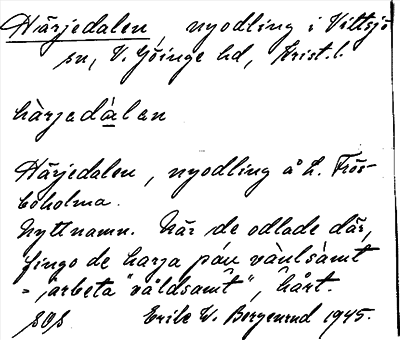 Härjedalen, nyodling i Vittsjö
sn, V. Göinge hd, Krist. l.
hàrjedàlen
Härjedalen, nyodling å L. Frös-
boholma.
Nyttnamn. När de odlade där,
fingo de harja páu vàulsàmt
= "arbeta "våldsamt", hårt.
SOS Erik W. Bergenrud 1945.